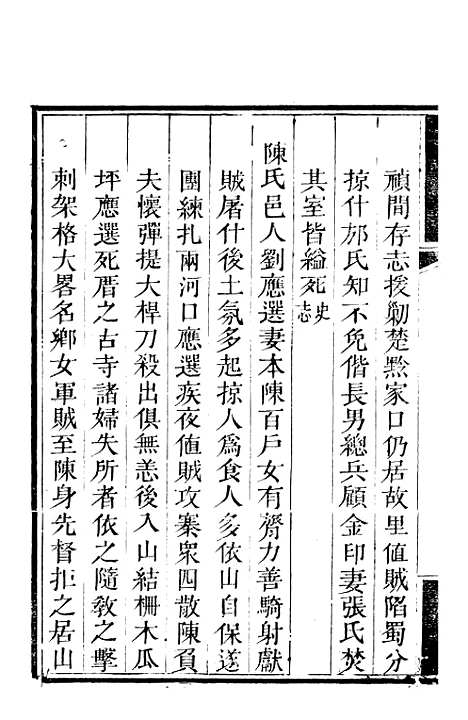 禎間存志援勦楚黔家口仍居故里值賊陷蜀分
掠什邡氏知不免偕長男總兵顧金印妻張氏焚
其室皆縊死史志
陳氏邑人劉應選妻本陳百戶女有膂力善騎射獻
賊屠什後土氛多起掠人爲食人多依山自保送
團練扎兩河口應選疾夜值賊攻寨衆四散陳負
夫懷彈提大桿刀殺出俱無恙後入山結柵木瓜
坪應選死厝之古寺諸婦失所者依之隨教之擊
刺架格大畧名鄉女軍賊至陳身先督拒之居山